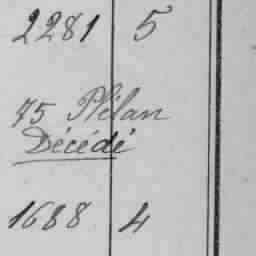 2281 5
75 Plélan
Décédé
1688 4